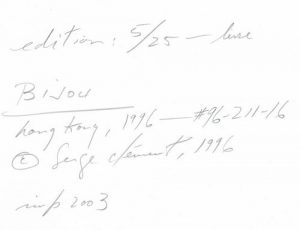 edition: 5/25 —
BIJOU
Hong Kong, 1996 — #96-211-16
© Serge Clément, 1996
imp 2003